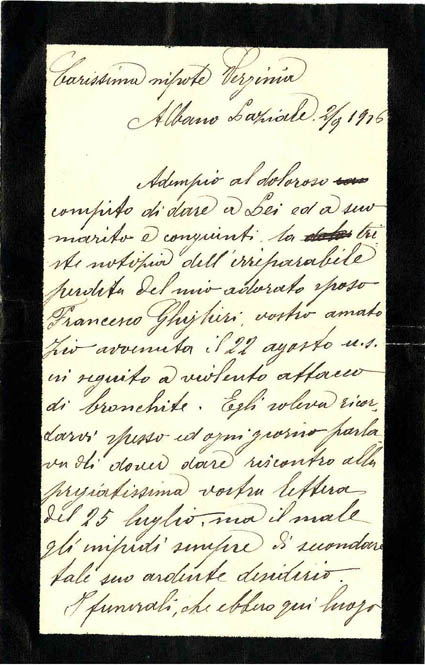 Carissima nipote Verginia
Albano Laziale. 2/9 1926
Adempio al doloroso
compito di dare a Lei ed a suo
marito e congiunti, la tri
ste notizia dell'irreparabile
perdita del mio adorato sposo
Francesco Ghighieri, vostro amato
Zio avvenuta il 22 agosto u.s.
in seguito a violento attacco
di bronchite. Egli voleva ricor,
darvi spesso ed ogni giorno parla,
va di dover dare riscontro alla
pregiatissima vostra lettera
del 25 luglio, ma il male
gli impedì sempre di secondare
tale suo ardente desiderio.
I funerali, che ebbero qui luogo